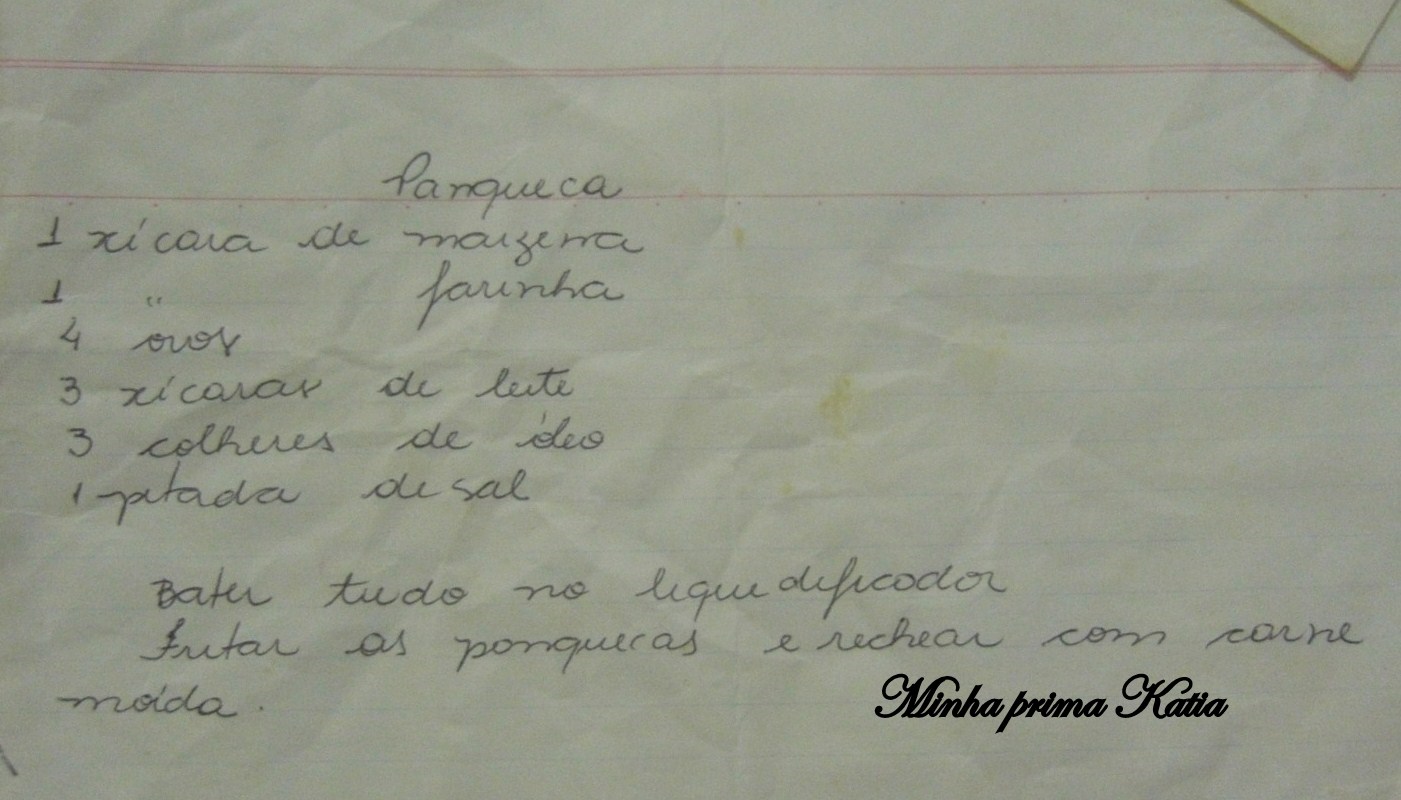 Panqueca
1 xícara de maizena
1 " farinha
4 ovos
3 xícaras de leite
3 colheres de óleo
1 pitada de sal
Bater tudo no liquedificador
Fritar as panquecas e rechear com carne
moída.
Minha prima Katia